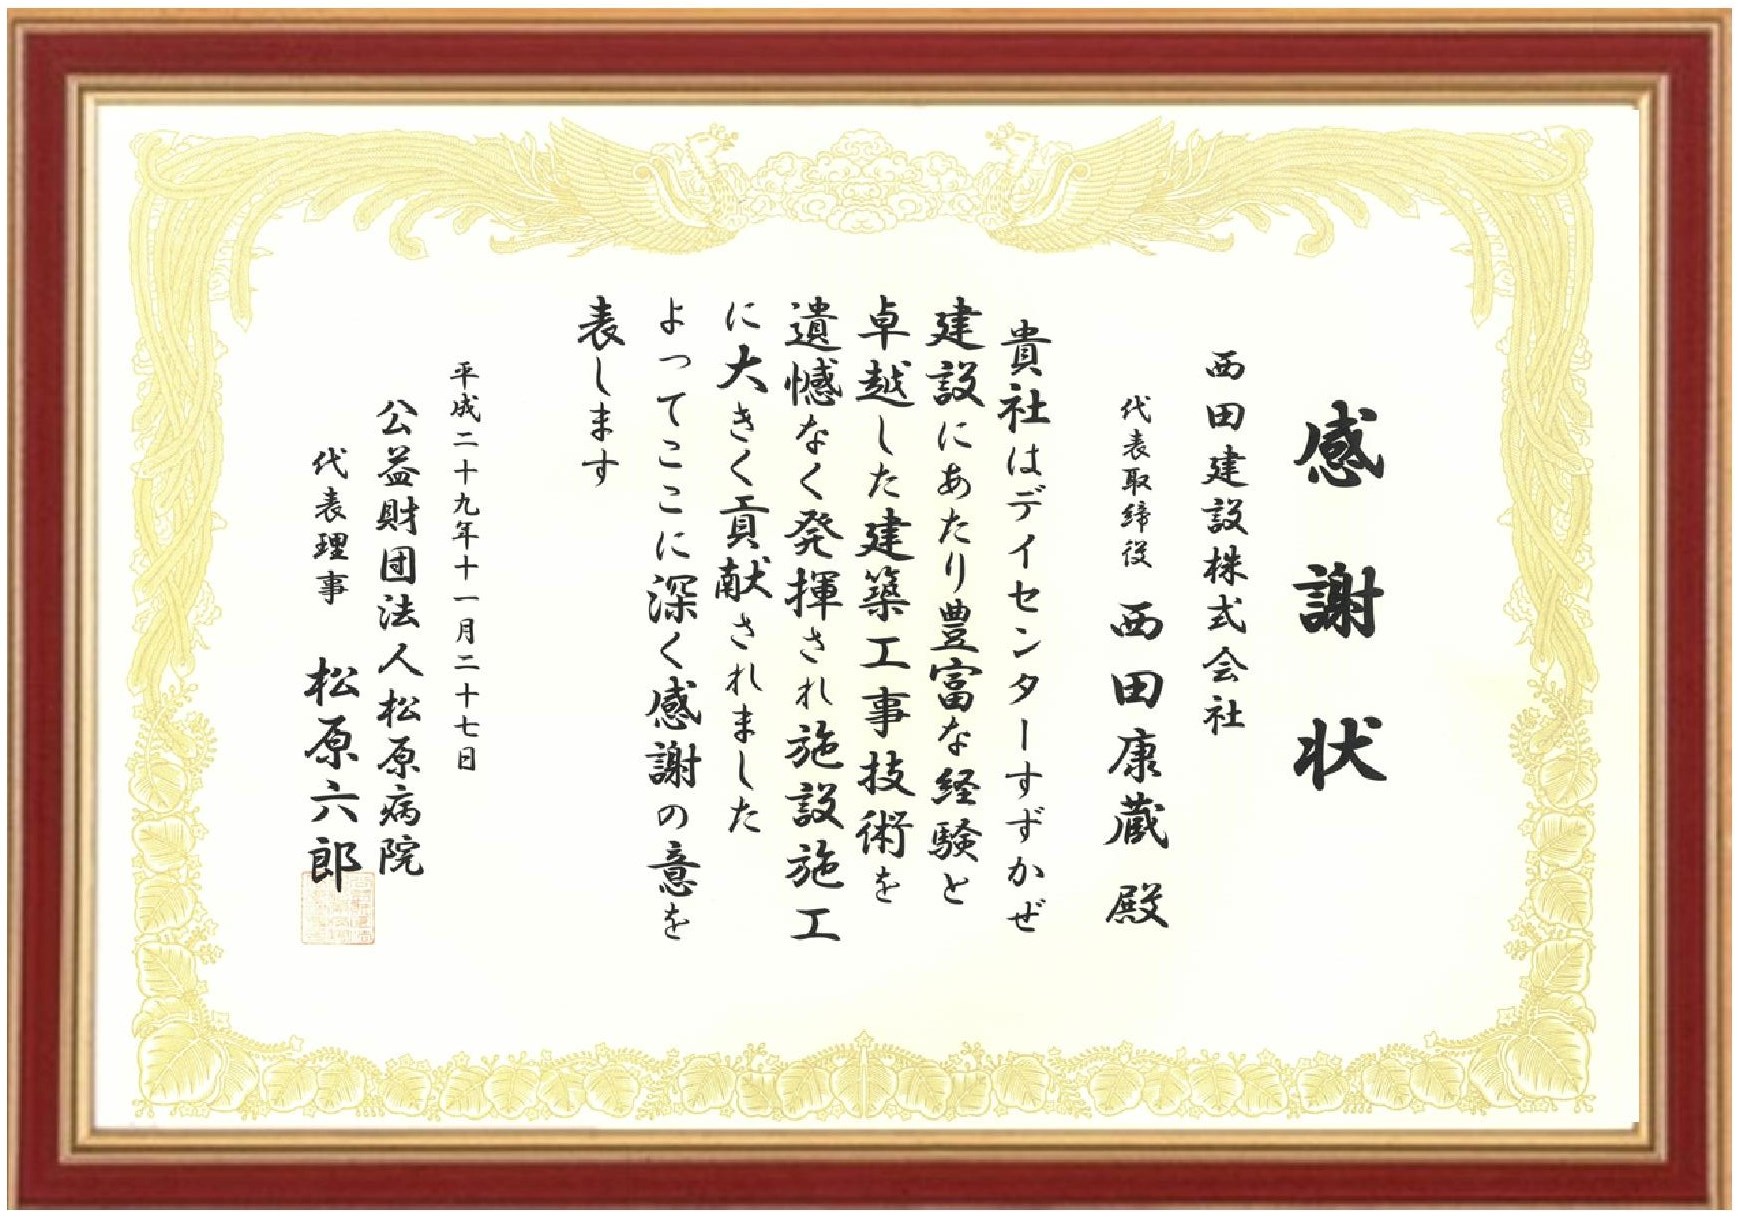 感謝状
西田建設株式会社
代表取締役 西田康蔵 殿
貴社はデイセンターすずかぜ
建設にあたり豊富な経験と
卓越した建築工事技術を
遺憾なく発揮され施設施工
に大きく貢献されました
よってここに深く感謝の意を
表します
平成二十九年十一月二十七日
公益財団法人松原病院
代表理事 松原六郎